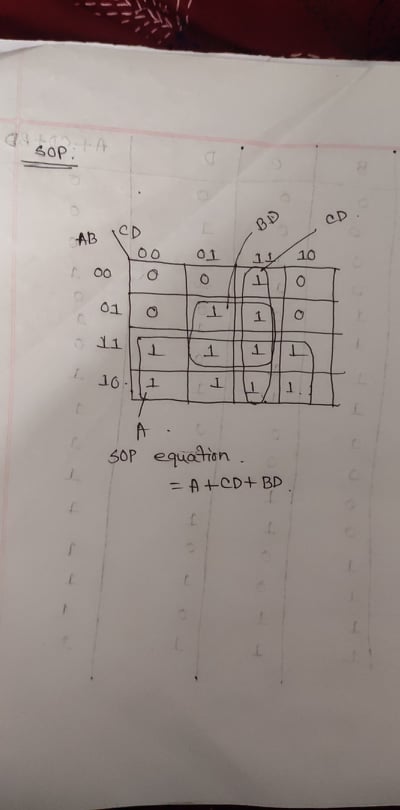 SOP:
BD CD
AB CD
00 01 11 10
00 0 0 1 0
01 0 1 1 0
11 1 1 1 1
10 1 1 1 1
A
SOP equation.
= A+CD+BD.